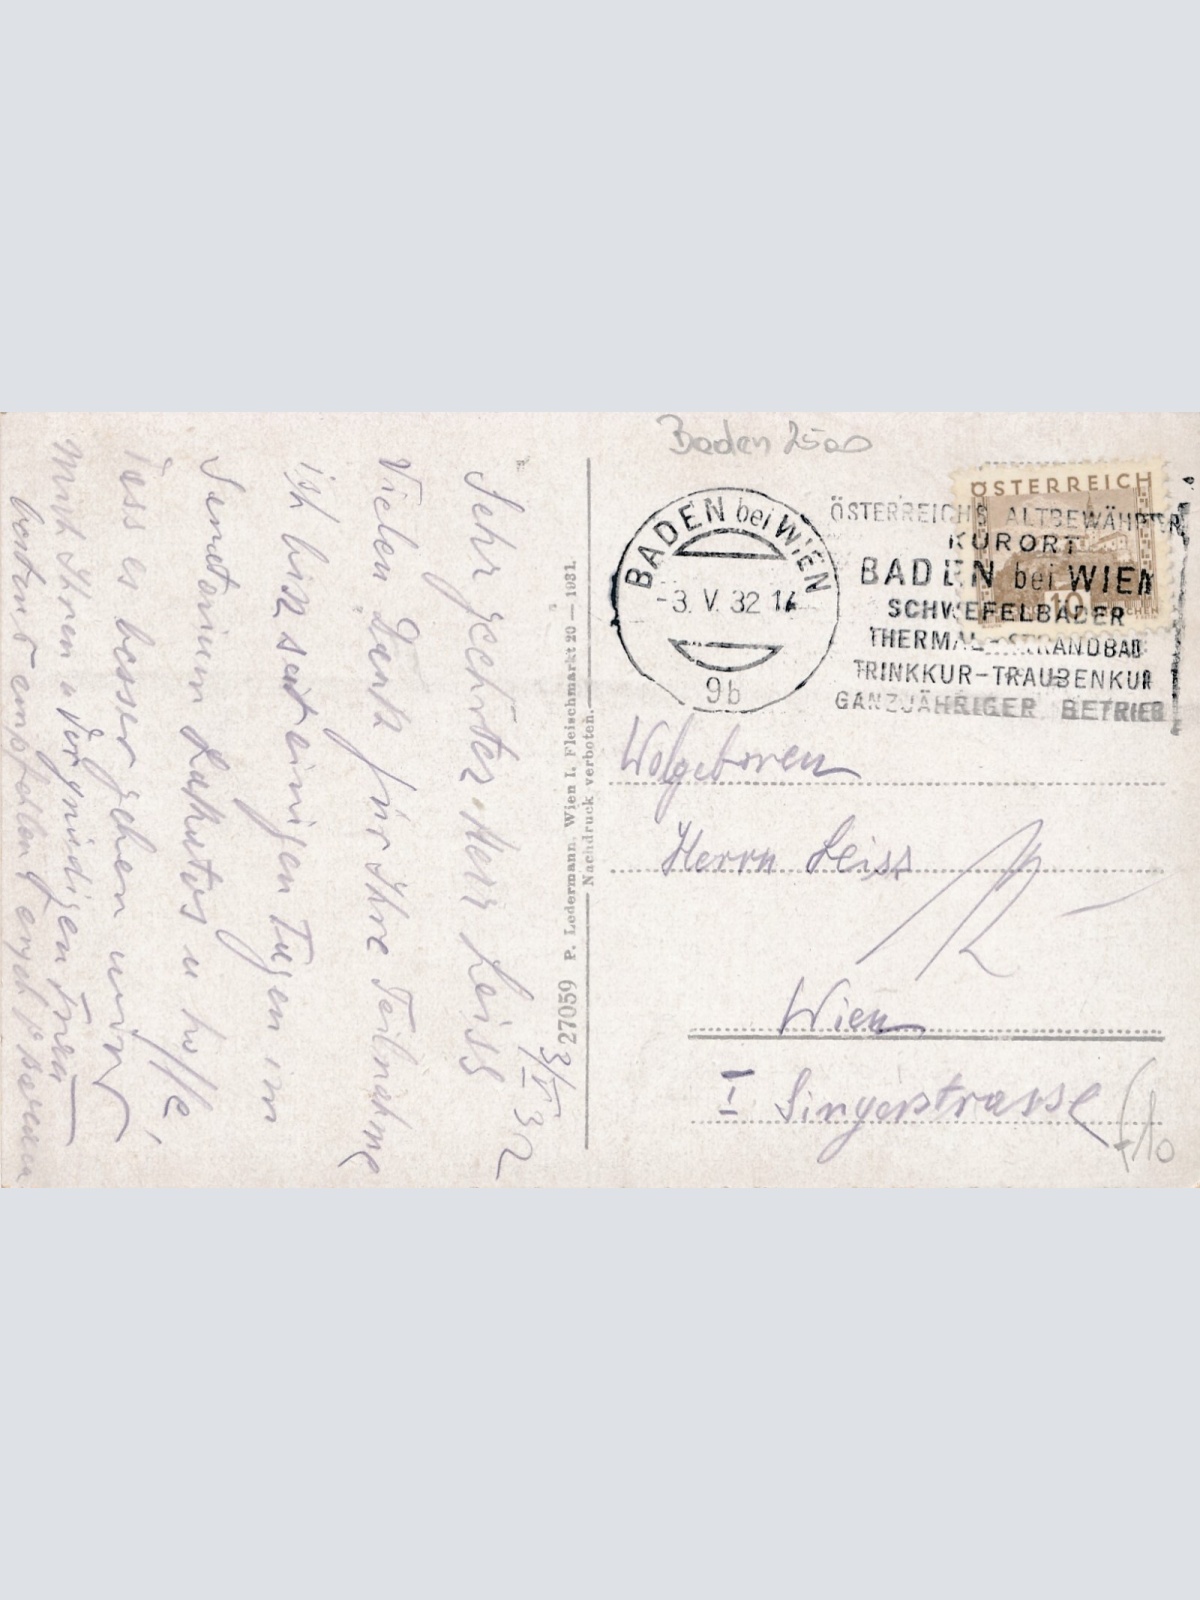 Baden 2500
ÖSTERREICH
10
BADEN bei WIEN
-3. V. 32 14
9b
ÖSTERREICHS ALTBEWÄHRTER
KURORT
BADEN bei WIEN
SCHWEFELBÄDER
THERMAL-STRANDBAD
TRINKKUR-TRAUBENKUR
GANZJÄHRIGER BETRIEB
Wolgeboren
Herrn Leiss
Wien
I Singerstrasse
10
27059 P. Ledermann, Wien I. Fleischmarkt 20 — 1931.
Nachdruck verboten.
3/V 32
Sehr geehrter Herr Leiss
Vielen Dank für Ihre Teilnahme
ich bin seit einigen Tagen im
Sanatorium u hoffe,
dass es besser gehen wird
mich Ihnen u Ihr gnädigen Frau
bestens empfelend